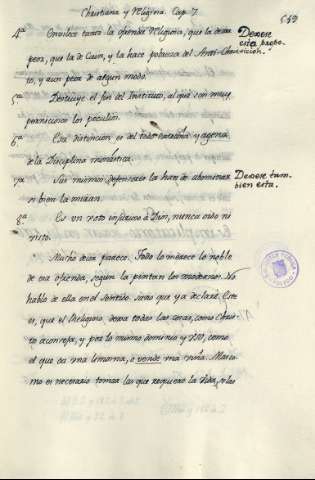 Christiana y Religiosa. Cap. 7.
549
4ª Envilece tanto la ofrenda Religiosa, que la hace
peor, que la de Cain, y la hace pobreza del Anti-Christo,
y aun peor de algun modo.
Deseese
esta propo-
sicion.
5ª Destruye el fin del Instituto, al qual son muy
perniciosos los peculios.
6ª Esta distincion es del todo estraña, y agena
de la Disciplina monastica.
7ª Sus mismos defensores la han de abominar
si bien la miran.
Deseese tam-
bien esta.
8ª Es un voto injurioso a Dios, nunca oido ni
visto.
Mucho decir parece. Todo lo merece lo noble
de esa ofrenda, segun la pintan los modernos. No
hablo de ella en el sentido sano que ya declaré. Este
es, que el Religioso dexa todas las cosas, como Chris-
to aconseja, y por lo mismo dominio y uso, como
el que da una limosna, o vende una viña. Mas co-
mo es necesario tomar las que requiere la vida, y las